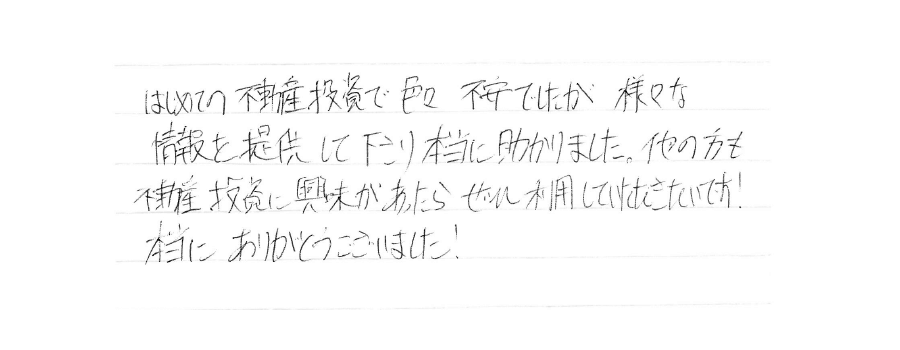 はじめての不動産投資で色々 不安でしたが 様々な
情報を提供して下さり本当に助かりました。他の方も
不動産投資に興味があったら ぜひ利用していただきたいです!
本当に ありがとうございました!